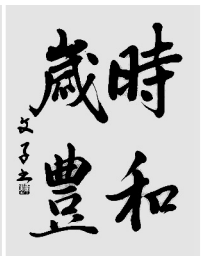 時和
歲豐
文子书